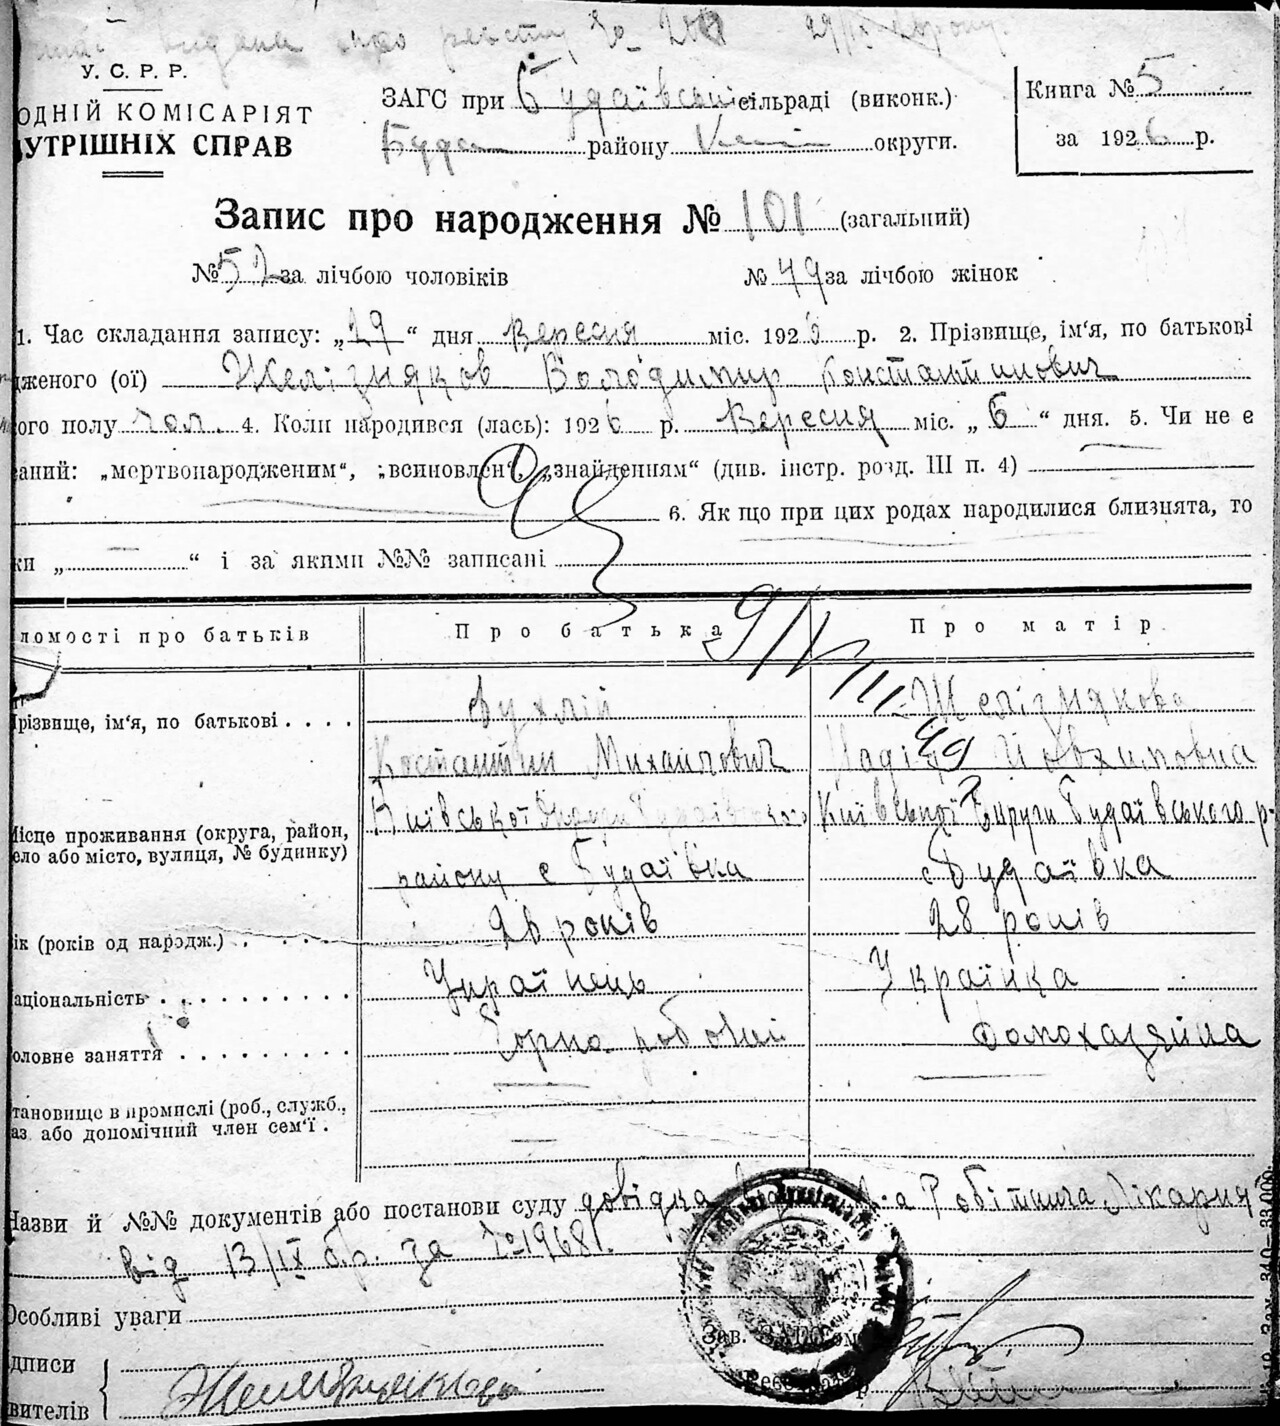 У. С. Р. Р.
ОДНІЙ КОМІСАРІЯТ
УТРІШНІХ СПРАВ
ЗАГС при Будаївській сільраді (виконк.)
району округи.
Книга № 5
за 1926 р.
Запис про народження № 101 (загальний)
№ 52 за лічбою чоловіків № 49 за лічбою жінок
1. Час складання запису: „19“ дня Вересня міс. 1926 р. 2. Прізвище, ім'я, по батькові
дженого (ої) Желізняков Володимир Константинович
ого полу чол. 4. Коли народився (лась): 1926 р. Вересня міс. „6“ дня. 5. Чи не є
саний: „мертвонародженим“, „всиновлен“, „знайденням“ (див. інстр. розд. III п. 4)
6. Як що при цих родах народилися близнята, то
ки „ “ і за якими №№ записані
домості про батьків Про батька Про матір
Прізвище, ім'я, по батькові
Желізнякова
Костантин Михайлович Надія Йовхимовна
Місце проживання (округа, район,
ело або місто, вулиця, № будинку)
Київської Округи Будаївського Київської Округи Будаївського р-
району с Будаївка с Будаївка
ік (років од народж.) 26 років 28 років
аціональність Українець Українка
оловне заняття Горно робочий Домохазяйка
тановище в промислі (роб., служб.,
аз. або допомічний член сем'ї
Назви й №№ документів або постанови суду довідка Робітнича Лікарня
від 13/IX б.р. за № 1968.
Особливі уваги
Зав. ЗАГСом
дписи
вителів